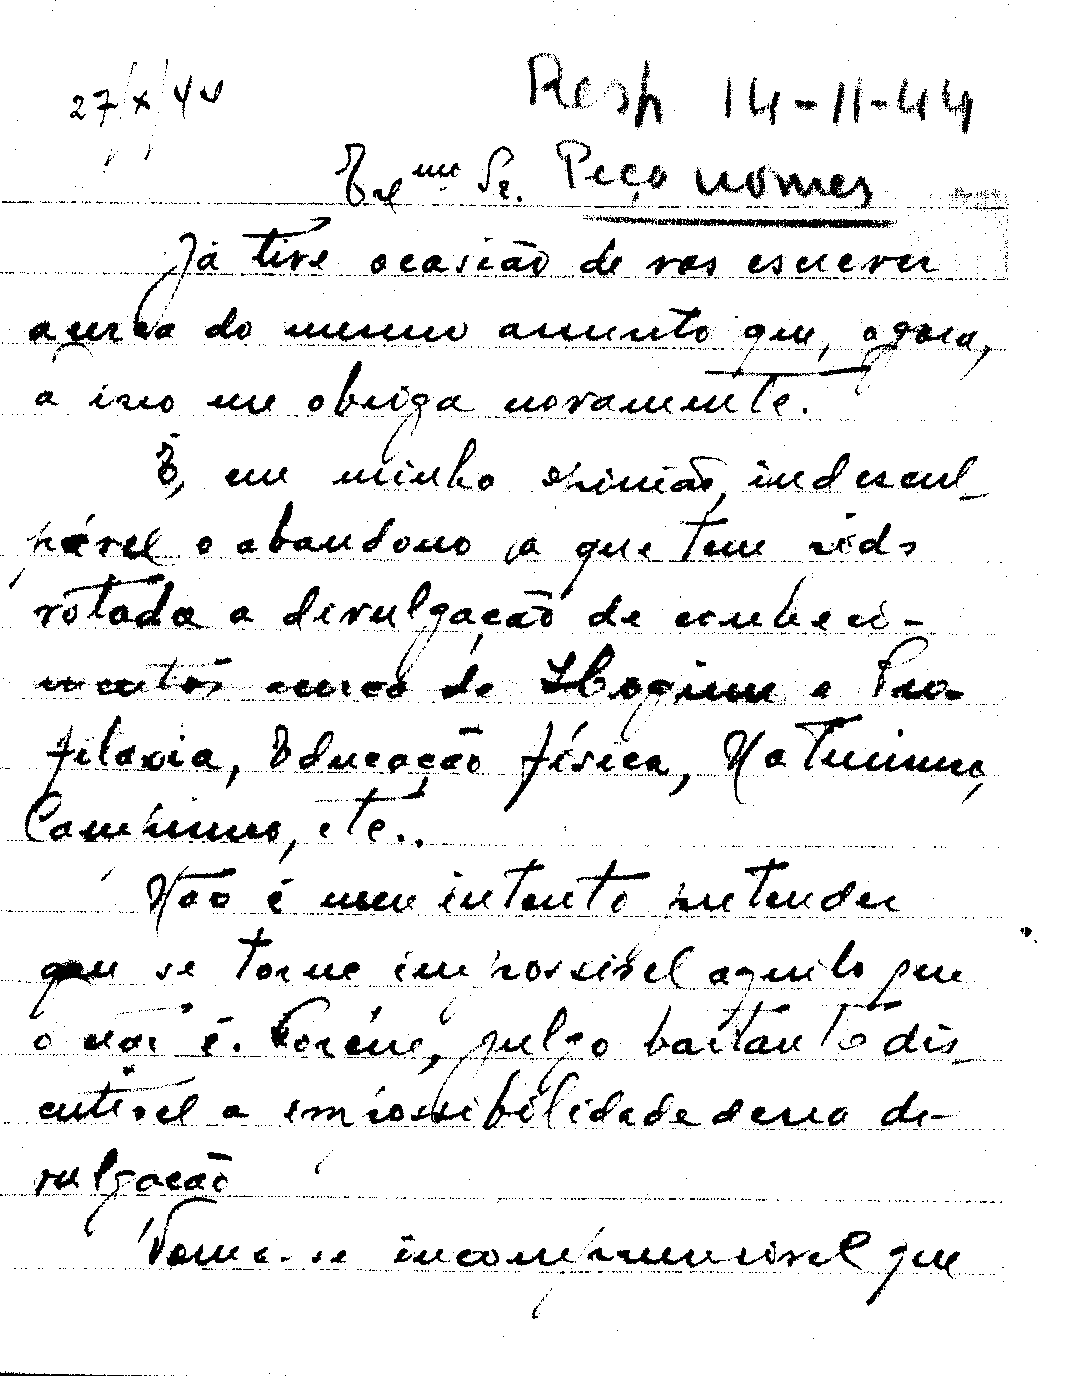 27/X/44
Resp 14-11-44
Exmo Sr. Peço nomes
Já tive ocasião de vos escrever
acerca do mesmo assunto que, agora,
a isso me obriga novamente.
É, em minha opinião, indescul-
pável o abandono a que tem sido
votada a divulgação de conheci-
mentos acerca de Higiene e Pro-
filaxia, Educação física, Naturismo,
Campismo, etc..
Não é meu intento pretender
que se torne impossível aquilo que
o não é. Porém, julgo bastante dis-
cutível a impossibilidade dessa di-
vulgação
Torna-se incompreensível que